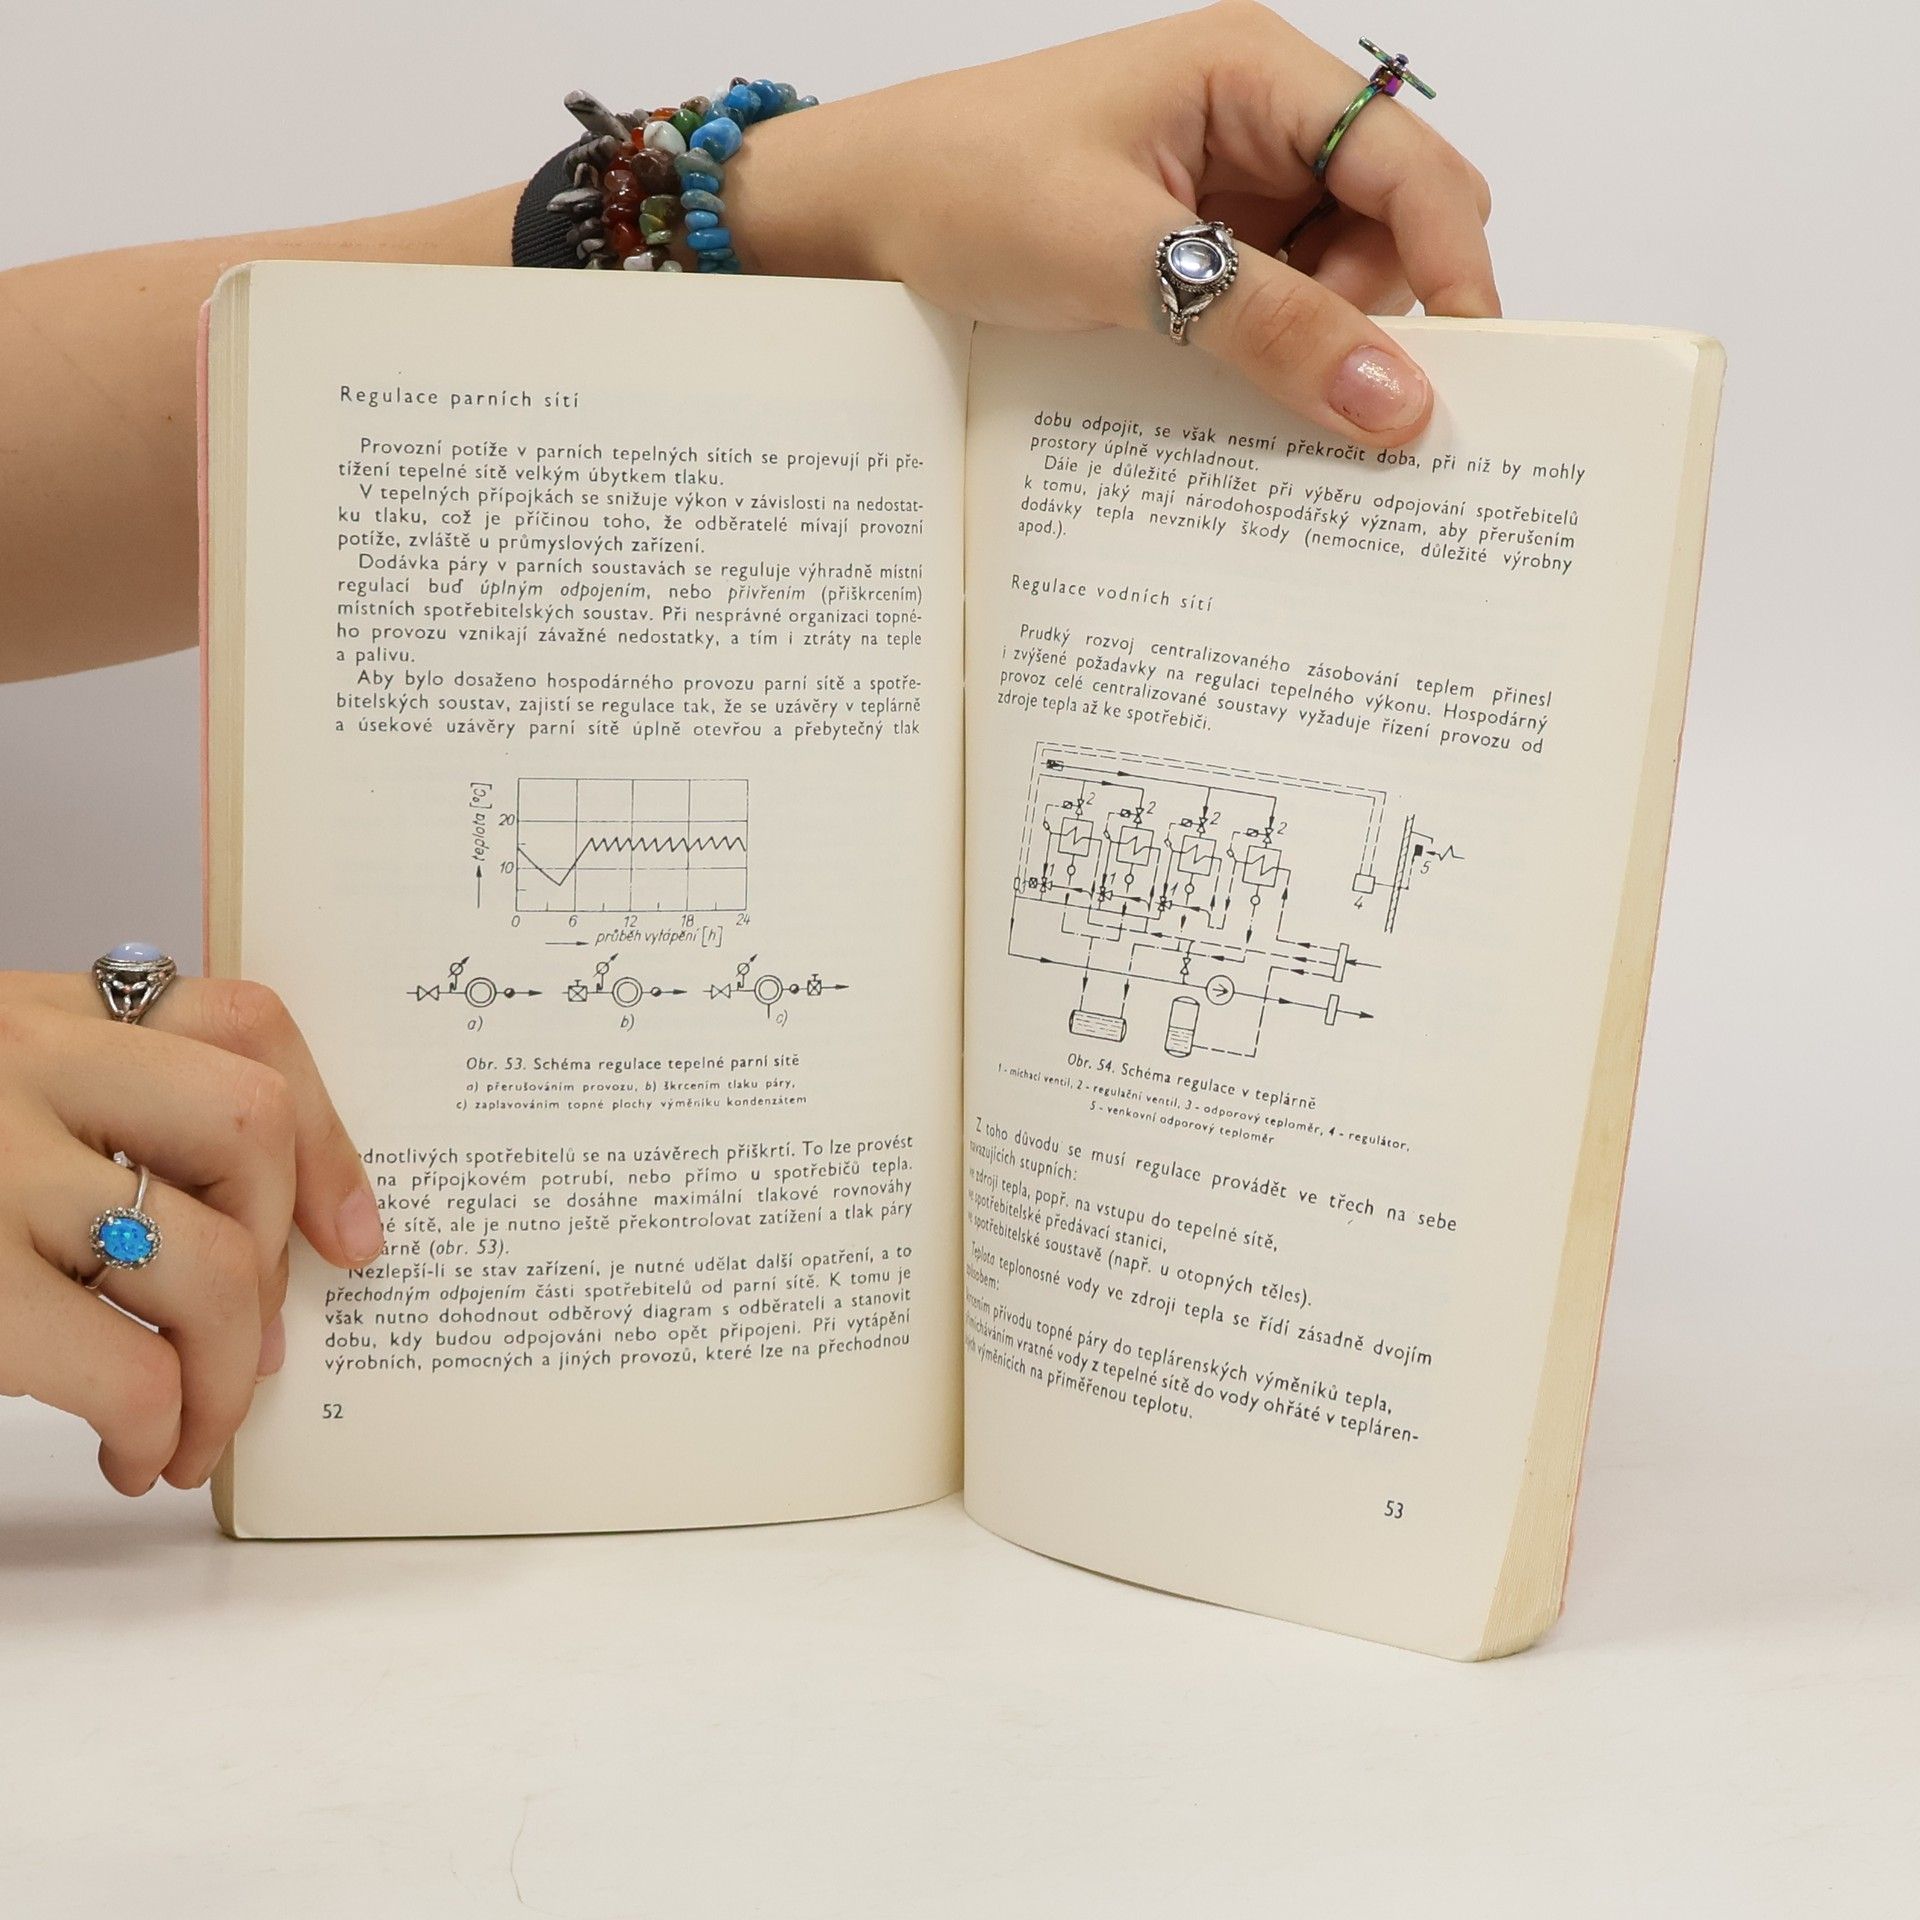 Regulace parních sítí
Provozní potíže v parních tepelných sítích se projevují při pře-
tížení tepelné sítě velkým úbytkem tlaku.
V tepelných přípojkách se snižuje výkon v závislosti na nedostat-
ku tlaku, což je příčinou toho, že odběratelé mívají provozní
potíže, zvláště u průmyslových zařízení.
Dodávka páry v parních soustavách se reguluje výhradně místní
regulací buď úplným odpojením, nebo přivřením (přiškrcením)
místních spotřebitelských soustav. Při nesprávné organizaci topné-
ho provozu vznikají závažné nedostatky, a tím i ztráty na teple
a palivu.
Aby bylo dosaženo hospodárného provozu parní sítě a spotře-
bitelských soustav, zajistí se regulace tak, že se uzávěry v teplárně
a úsekové uzávěry parní sítě úplně otevřou a přebytečný tlak
teplota [°C]
20
10
0 6 12 18 24
průběh vytápění [h]
a) b) c)
Obr. 53. Schéma regulace tepelné parní sítě
a) přerušováním provozu, b) škrcením tlaku páry,
c) zaplavováním topné plochy výměníku kondenzátem
dnotlivých spotřebitelů se na uzávěrech přiškrtí. To lze provést
na přípojkovém potrubí, nebo přímo u spotřebičů tepla.
akové regulaci se dosáhne maximální tlakové rovnováhy
é sítě, ale je nutno ještě překontrolovat zatížení a tlak páry
árně (obr. 53).
Nezlepší-li se stav zařízení, je nutné udělat další opatření, a to
přechodným odpojením části spotřebitelů od parní sítě. K tomu je
však nutno dohodnout odběrový diagram s odběrateli a stanovit
dobu, kdy budou odpojováni nebo opět připojeni. Při vytápění
výrobních, pomocných a jiných provozů, které lze na přechodnou
52
dobu odpojit, se však nesmí překročit doba, při níž by mohly
prostory úplně vychladnout.
Dále je důležité přihlížet při výběru odpojování spotřebitelů
k tomu, jaký mají národohospodářský význam, aby přerušením
dodávky tepla nevznikly škody (nemocnice, důležité výrobny
apod.).
Regulace vodních sítí
Prudký rozvoj centralizovaného zásobování teplem přinesl
i zvýšené požadavky na regulaci tepelného výkonu. Hospodárný
provoz celé centralizované soustavy vyžaduje řízení provozu od
zdroje tepla až ke spotřebiči.
2 2 2 2
1 1 1
4
5
Obr. 54. Schéma regulace v teplárně
1 - míchací ventil, 2 - regulační ventil, 3 - odporový teploměr, 4 - regulátor,
5 - venkovní odporový teploměr
Z toho důvodu se musí regulace provádět ve třech na sebe
navazujících stupních:
ve zdroji tepla, popř. na vstupu do tepelné sítě,
ve spotřebitelské předávací stanici,
ve spotřebitelské soustavě (např. u otopných těles).
Teplota teplonosné vody ve zdroji tepla se řídí zásadně dvojím
způsobem:
škrcením přívodu topné páry do teplárenských výměníků tepla,
přimícháváním vratné vody z tepelné sítě do vody ohřáté v tepláren-
ských výměnících na přiměřenou teplotu.
53